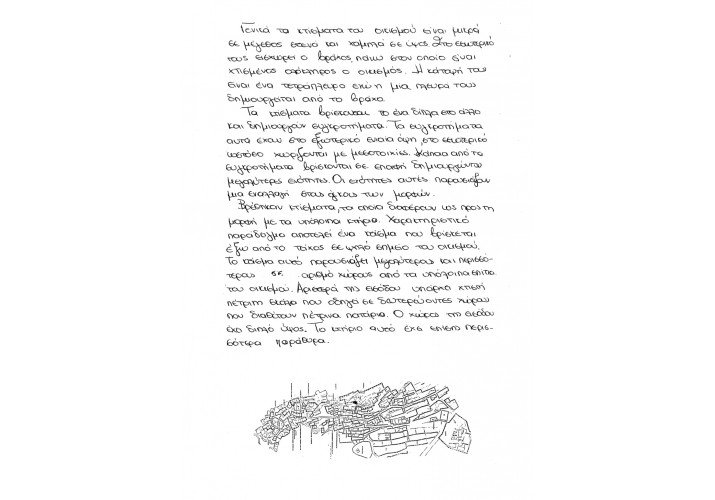 Γενικά τα κτίσματα του οικισμού είναι μικρά
σε μέγεθος στενά και χαμηλά σε ύψος. Στο εσωτερικό
τους εισχωρεί ο βράχος, πάνω στον οποίο είναι
χτισμένος ολόκληρος ο οικισμός. Η κάτοψή του
είναι ένα τετράπλευρο ενώ η μια πλευρά του
δημιουργείται από το βράχο.
Τα κτίσματα βρίσκονται το ένα δίπλα στο άλλο
και δημιουργούν συγκροτήματα. Τα συγκροτήματα
αυτά έχουν στο εξωτερικό ενιαία όψη, στο εσωτερικό
ωστόσο χωρίζονται με μεσοτοιχίες. Κάποια από τα
συγκροτήματα βρίσκονται σε επαφή δημιουργώντας
μεγαλύτερες ενότητες. Οι ενότητες αυτές παρουσιάζουν
μια εναλλαγή στους όγκους των μορφών.
Βρέθηκαν κτίσματα, τα οποία διαφέρουν ως προς τη
μορφή με τα υπόλοιπα κτήρια. Χαρακτηριστικό
παράδειγμα αποτελεί ένα κτίσμα που βρίσκεται
έξω από το τείχος σε ψηλό σημείο του οικισμού.
Το κτίσμα αυτό παρουσιάζει μεγαλύτερους και περισσό-
τερους σε αριθμό χώρους από τα υπόλοιπα σπίτια
του οικισμού. Αριστερά της εισόδου υπάρχει χτιστή
πέτρινη σκάλα που οδηγεί σε δευτερεύοντες χώρους
που διαθέτουν πέτρινα πατάρια. Ο χώρος της εισόδου
έχει διπλό ύψος. Το κτήριο αυτό έχει επίσης περισ-
σότερα παράθυρα.